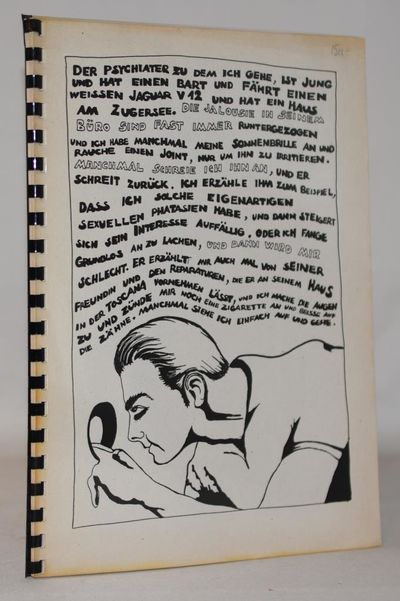 DER PSYCHIATER ZU DEM ICH GEHE, IST JUNG
UND HAT EINEN BART UND FÄHRT EINEN
WEISSEN JAGUAR V12 UND HAT EIN HAUS
AM ZUGERSEE. DIE JALOUSIE IN SEINEM
BÜRO SIND FAST IMMER RUNTERGEZOGEN
UND ICH HABE MANCHMAL MEINE SONNENBRILLE AN UND
RAUCHE EINEN JOINT, NUR UM IHN ZU IRRITIEREN.
MANCHMAL SCHREIE ICH IHN AN, UND ER
SCHREIT ZURÜCK. ICH ERZÄHLE IHM ZUM BEISPIEL,
DASS ICH SOLCHE EIGENARTIGEN
SEXUELLEN PHATASIEN HABE, UND DANN STEIGERT
SICH SEIN INTERESSE AUFFÄLLIG. ODER ICH FANGE
GRUNDLOS AN ZU LACHEN, UND DANN WIRD MIR
SCHLECHT. ER ERZÄHLT MIR AUCH MAL VON SEINER
FREUNDIN UND DEN REPARATUREN, DIE ER AN SEINEM HAUS
IN DER TOSCANA VORNEHMEN LÄSST, UND ICH MACHE DIE AUGEN
ZU UND ZÜNDE MIR NOCH EINE ZIGARETTE AN UND BEISSE AUF
DIE ZÄHNE. MANCHMAL STEHE ICH EINFACH AUF UND GEHE.